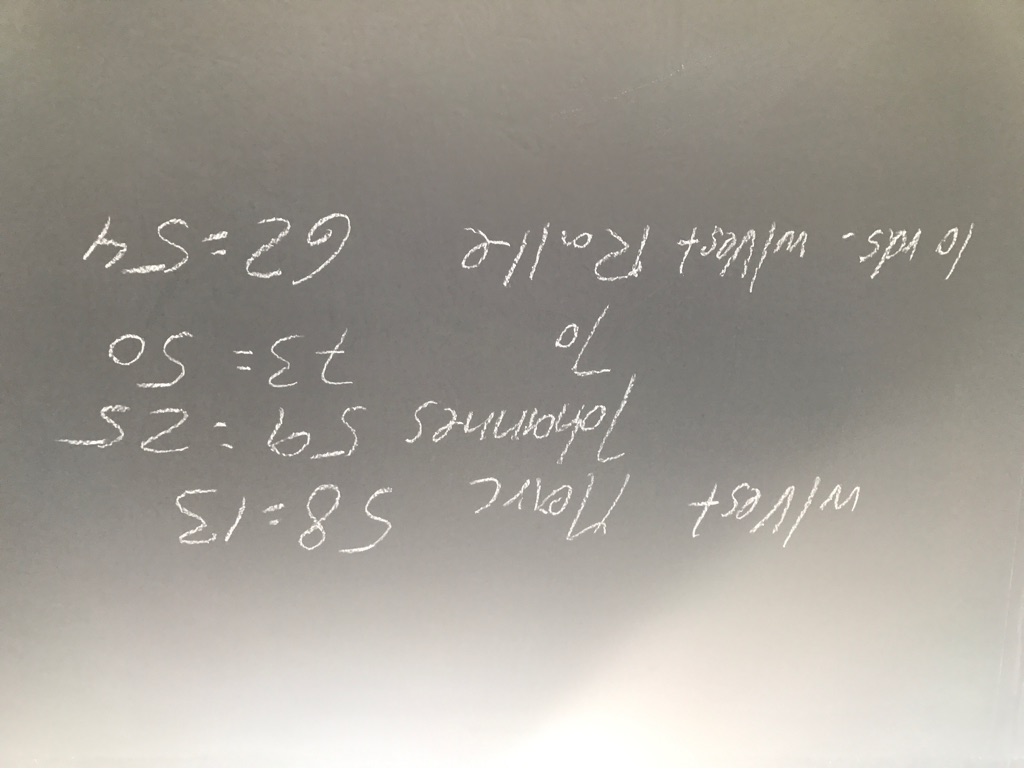 w/Vest Marc 58:13
Johannes 59:25
Jo 73:50
10 rds. w/Vest 62:54